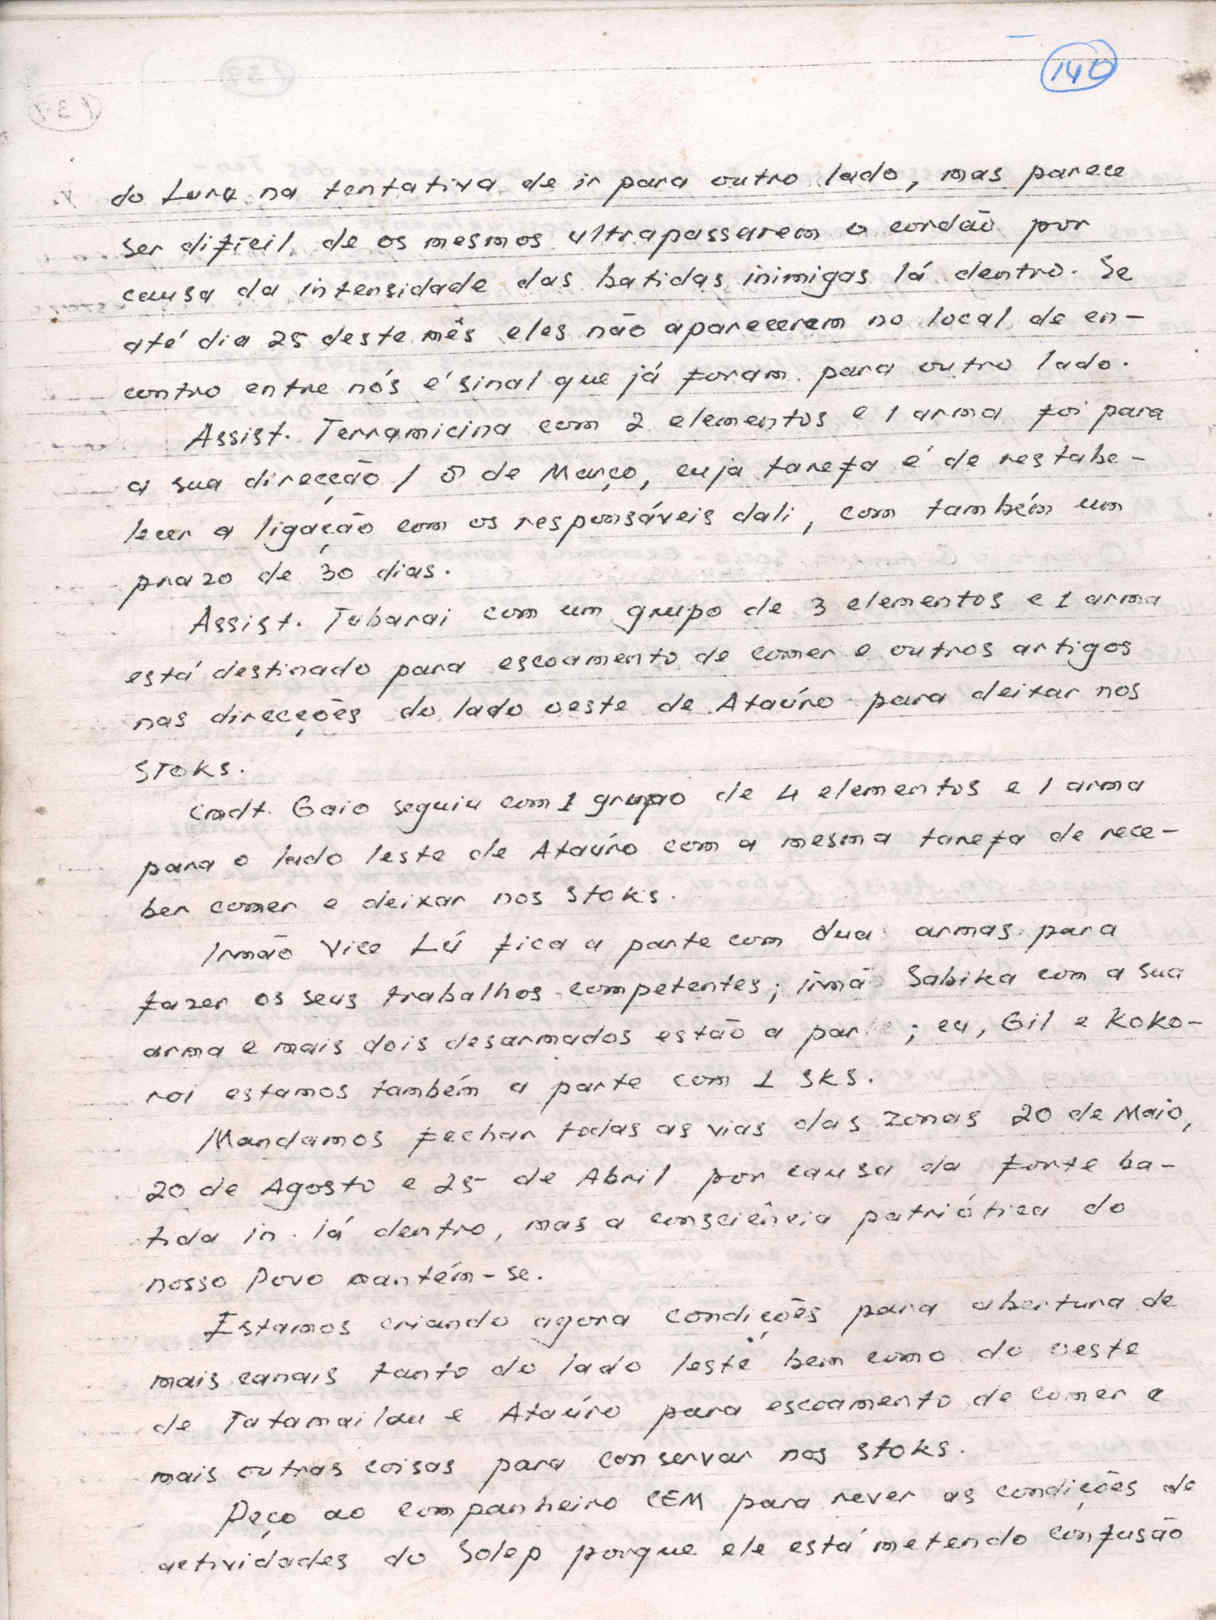 140
do Lura na tentativa de ir para outro lado, mas parece
ser difícil de os mesmos ultrapassarem o cordão por
causa da intensidade das batidas inimigas lá dentro. Se
até dia 25 deste mês eles não aparecerem no local de en-
contro entre nós é sinal que já foram para outro lado.
Assist. Terramicina com 2 elementos e 1 arma foi para
a sua direcção / de Março, cuja tarefa é de restabe-
lecer a ligação com os responsáveis dali, com também um
prazo de 30 dias.
Assist. Tubarai com um grupo de 3 elementos e 1 arma
está destinado para escoamento de comer e outros artigos
nas direcções do lado oeste de Ataúro para deixar nos
stoks.
Cmdt. Gaio seguiu com 1 grupo de 4 elementos e 1 arma
para o lado leste de Ataúro com a mesma tarefa de rece-
ber comer e deixar nos stoks.
Irmão Vice Lú fica a parte com dua armas para
fazer os seus trabalhos competentes; irmã Sabika com a sua
arma e mais dois desarmados estão a par ; eu, Gil e Koko-
roi estamos também a parte com 1 SKS.
Mandamos fechar todas as vias das zonas 20 de Maio,
20 de Agosto e 25 de Abril por causa da forte ba-
tida in. lá dentro, mas a consciência patriótica do
nosso Povo mantém-se.
Estamos criando agora condições para abertura de
mais canais tanto do lado leste bem como do oeste
de Tatamailau e Ataúro para escoamento de comer e
mais outras coisas para conservar nos stoks.
Peço ao companheiro CEM para rever as condições de
actividades do Solep porque ele está metendo confusão